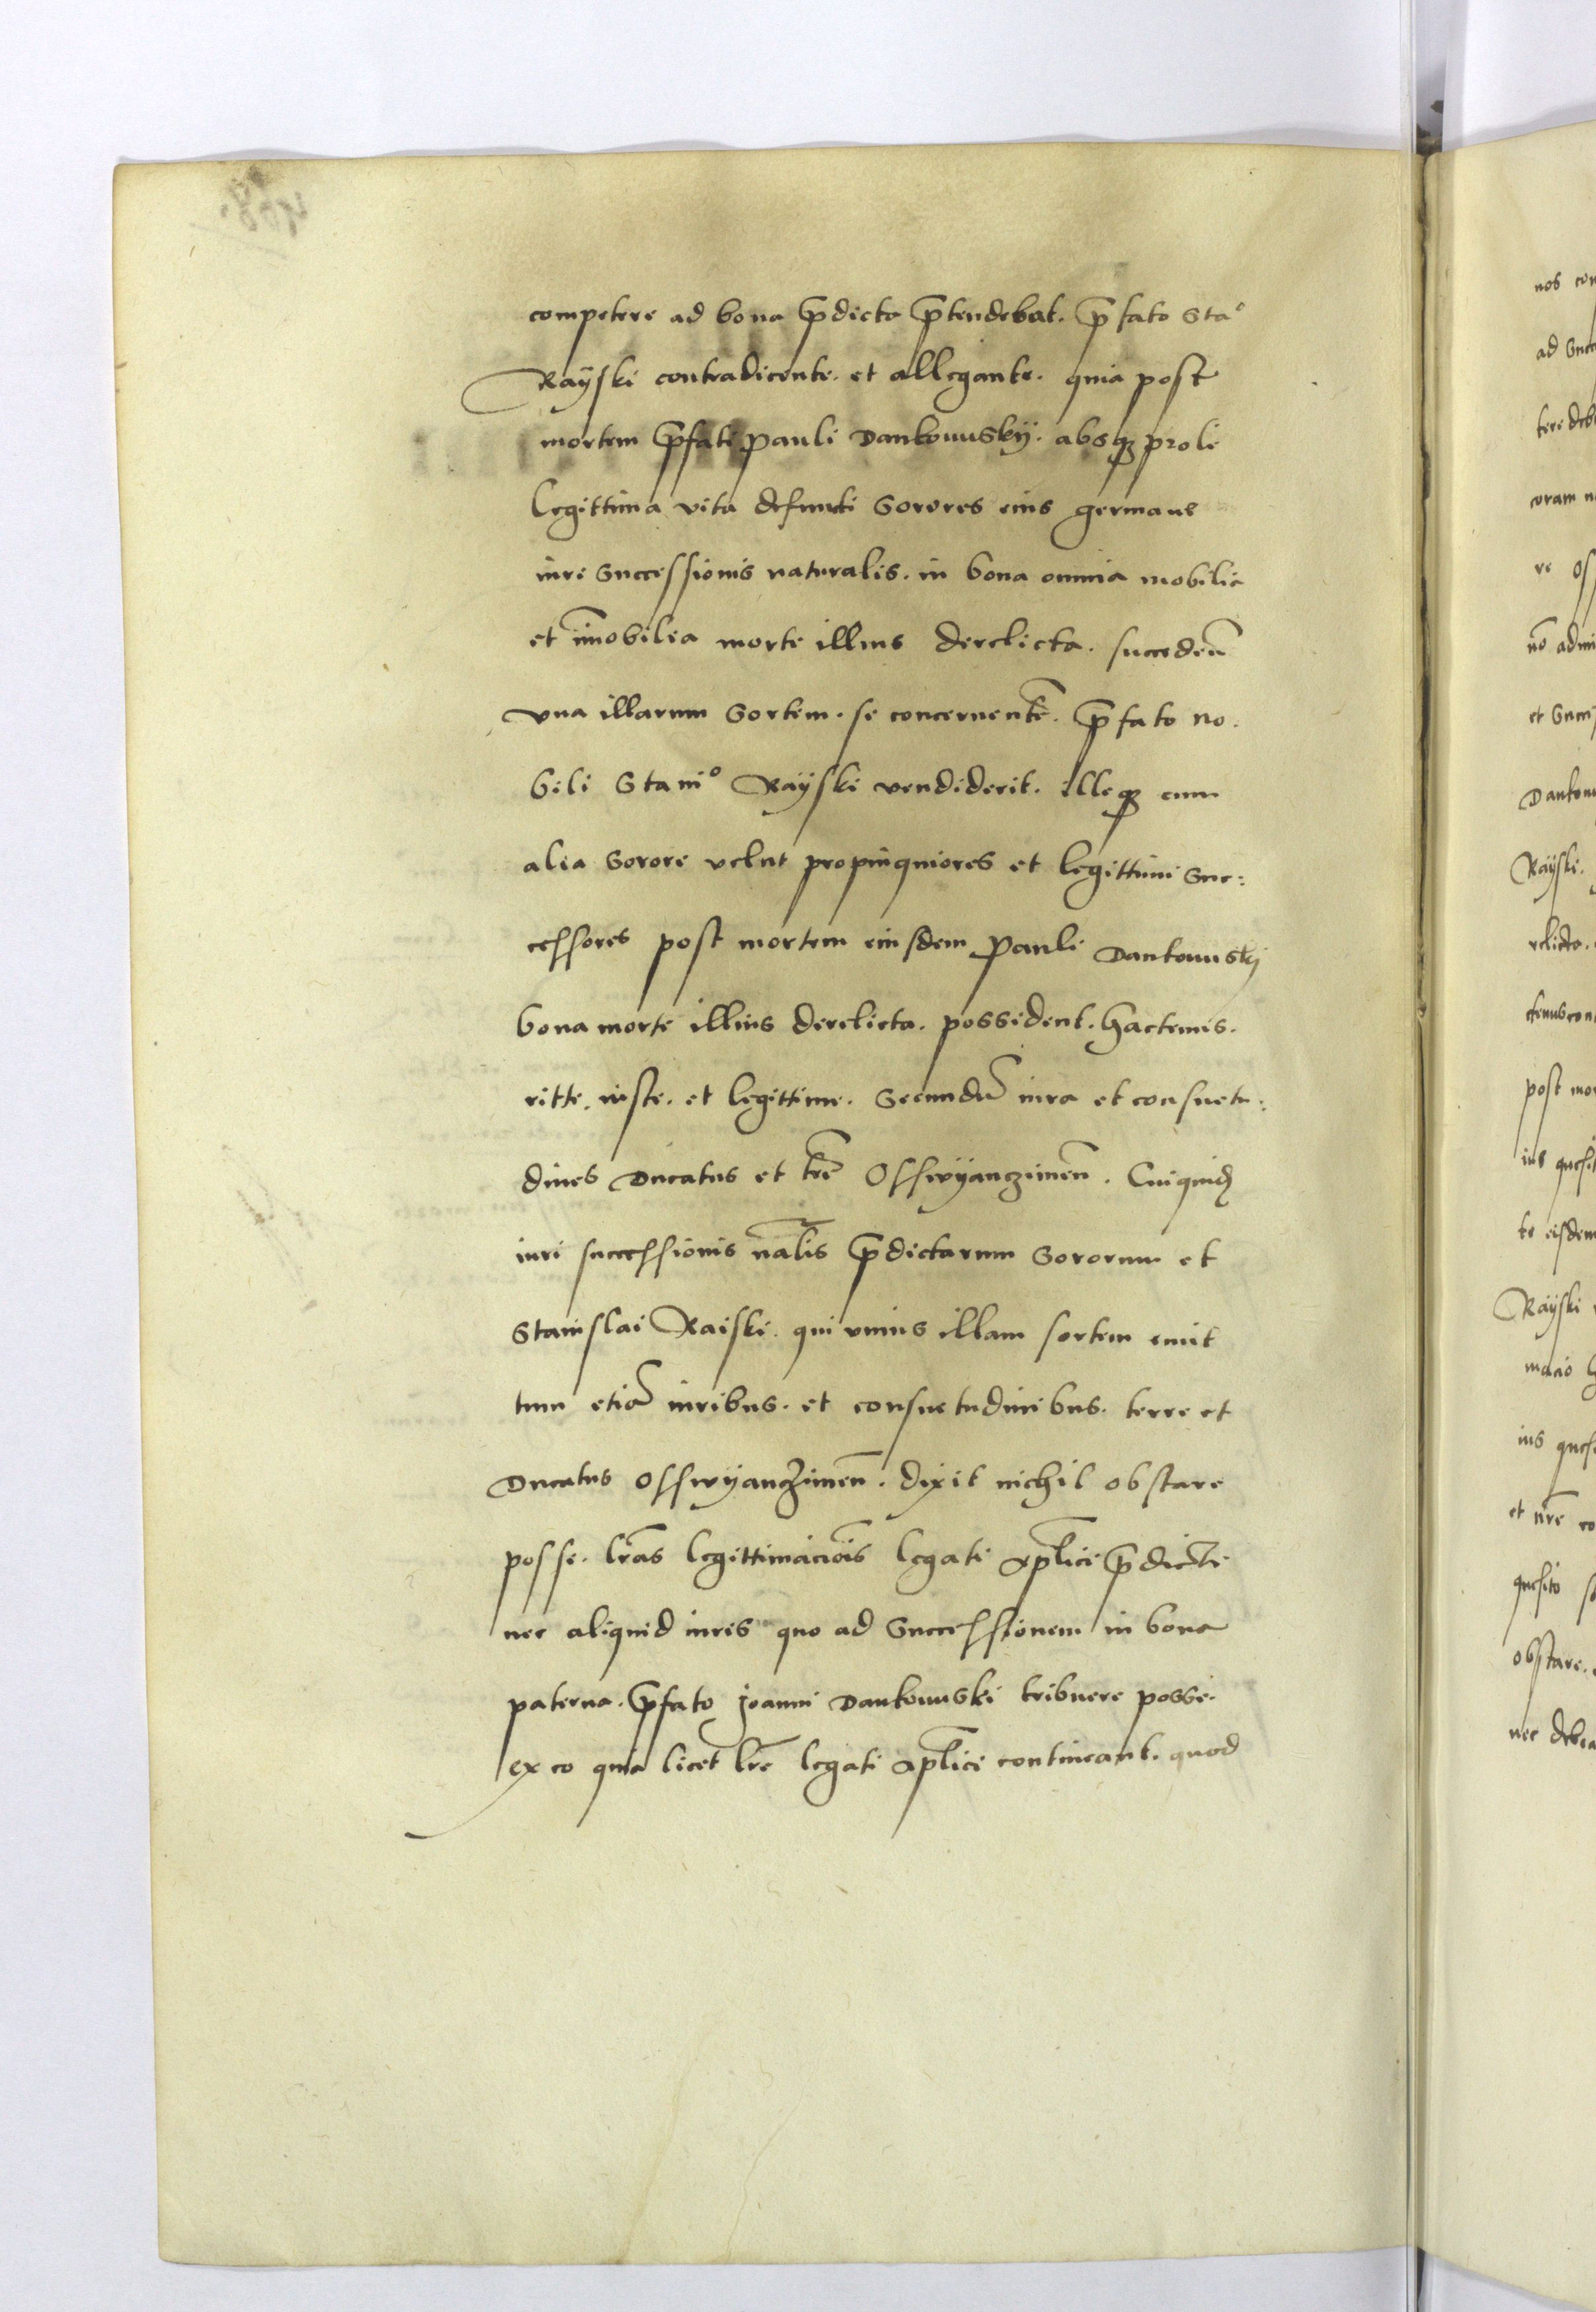 competere ad bona p̄dicta p̄tendebat. p̄fato Staᵒ
Rayski contradicente. et allegante. quia post
mortem p̄fati Pauli Dankowskÿ. absqꝫ prole
legittima vita defuncti Sorores eius germane
iure Successionis naturalis. in bona omnia mobilia
et im̄obilia morte illius derelicta. succeden̄
vna illarum Sortem. se concernentē. p̄fato no.
bili Staniᵒ Raÿski vendiderit. illeqꝫ cum
alia Sorore velut propinquiores et legittimi Suc:
cessores post mortem eiusdem Pauli Dankowskj
bona morte illius derelicta. possident. hactenus.
ritte. iuste. et legittime. Secundū iura et consuetu:
dines Ducatus et trē Osswÿanczimen̄. Cuiquidꝫ
iuri successionis nālis p̄dictarum Sororum et
Stanislai Raiski. qui vnius illam sortem emit
tum etiā iuribus. et consuetudinibus. terre et
Ducatus Osswÿanczimen̄. dixit nichil obstare
posse. lrās legittimaciōis legati aplīci p̄dicti
nec aliquid iuris quo ad Successionem in bona
paterna. p̄fato Joanni Dankowski tribuere posse.
ex eo quia licet lrē legati aplīci contineant. quod
nos con
ad Succ
tere deb
coram n
re Oss
nō admi
et Succ
Dankow
Raÿski.
relicta.
ctenus con
post mor
ius quesit
te eisdem
Raÿski
macio
ius ques
et nrē co
quesito
obstare.
nec debea